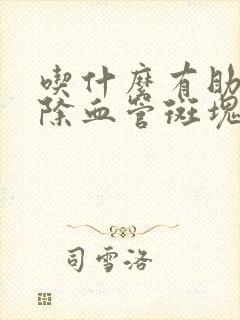 喫什麼有助
除血管斑塊
司雪洛